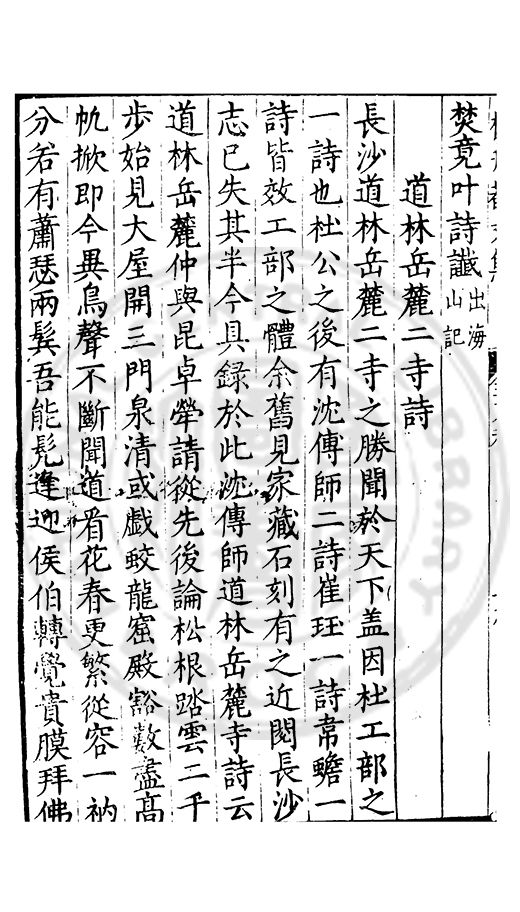 焚竟叶詩讖出海山記
道林岳麓二寺詩
長沙道林岳麓二寺之勝聞於天下盖因杜工部之
一詩也杜公之後有沈傳師二詩崔珏一詩韋蟾一
詩皆效工部之體余舊見家藏石刻有之近閱長沙
志已失其半今具錄於此沈傳師道林岳麓寺詩云
道林岳麓仲與昆卓犖請從先後論松根踏雲二千
步始見大屋開三門泉清或戲蛟龍窟殿豁數盡高
帆掀即今異鳥聲不斷聞道看花春更繁從容一衲
分若有蕭瑟兩鬂吾能髡逢迎侯伯轉覺貴膜拜佛